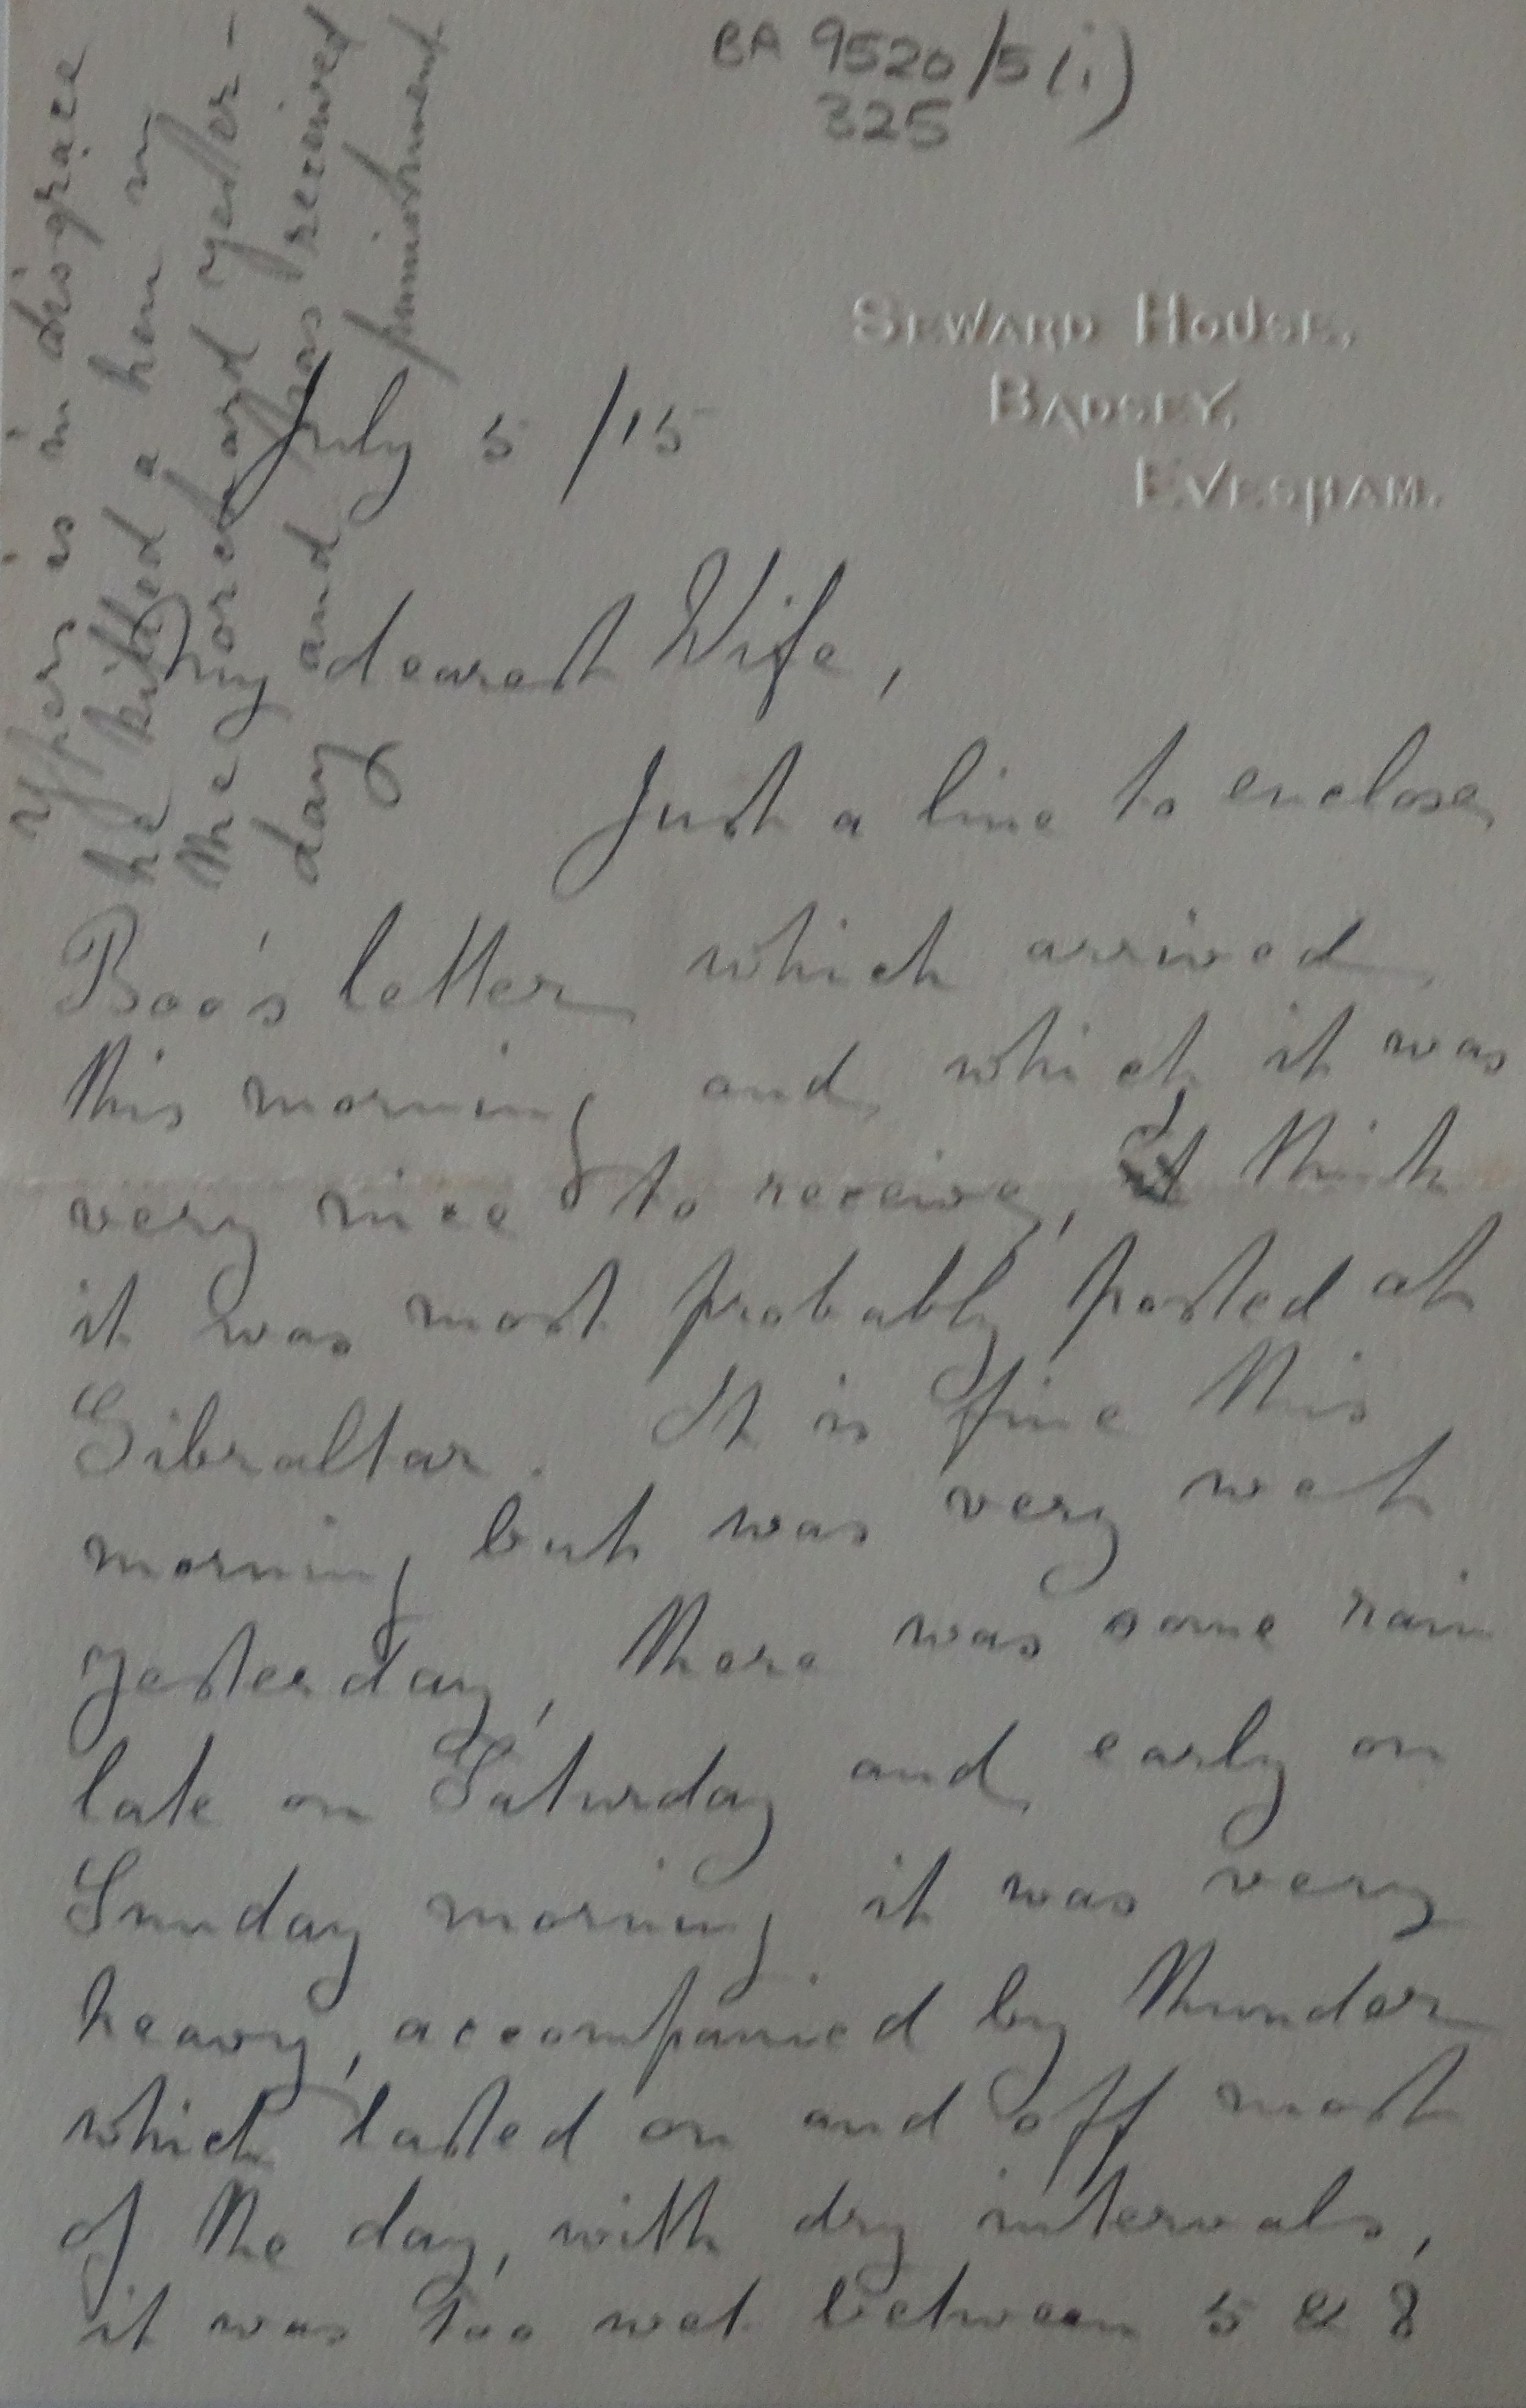 BA 9520/5(i)
325
SEWARD HOUSE,
BADSEY,
EVESHAM.
July 5/15
My dearest Wife,
Just a line to enclose
Boo's letter which arrived
this morning and which it was
very nice to receive, I think
it was most probably posted at
Gibraltar. It is fine this
morning but was very wet
yesterday, there was some rain
late on Saturday and early on
Sunday morning it was very
heavy, accompanied by thunder
which lasted on and off most
of the day, with dry intervals,
it was too wet between 5 & 8
Ypers is in disgrace
he killed a hen in
the orchard yester-
day and has received
punishment